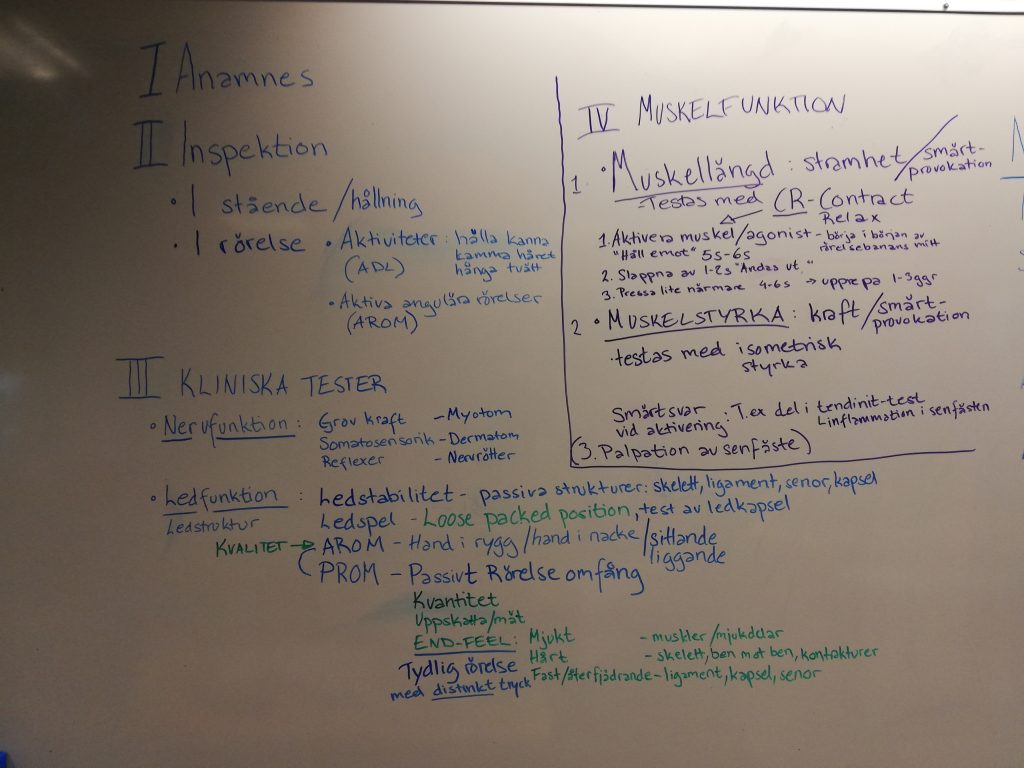 I Anamnes
II Inspektion
• I stående/hållning
• I rörelse • Aktiviteter: hålla kanna
(ADL) kamma håret
hänga tvätt
• Aktiva angulära rörelser
(AROM)
III KLINISKA TESTER
• Nervfunktion: Grov kraft - Myotom
Somatosensorik - Dermatom
Reflexer - Nervrötter
• Ledfunktion : Ledstabilitet - passiva strukturer: skelett, ligament, senor, kapsel
Ledstruktur Ledspel - Loose packed position, test av ledkapsel
KVALITET → AROM - Hand i rygg/hand i nacke/sittande
liggande
PROM - Passivt Rörelse omfång
Kvantitet
Uppskatta/mät
END-FEEL: Mjukt - muskler/mjukdelar
Hårt - skelett, ben mot ben, kontrakturer
Tydlig rörelse Fast/återfjädrande - ligament, kapsel, senor
med distinkt tryck
IV MUSKELFUNKTION
1. • Muskellängd : stramhet/smärt-
provokation
-Testas med CR-Contract
Relax
1. Aktivera muskel/agonist - börja i början av
"Håll emot" 5s-6s rörelsebanans mitt
2. Slappna av 1-2s "Andas ut"
3. Pressa lite närmare 4-6s → upprepa 1-3ggr
2 • MUSKELSTYRKA : kraft/smärt-
provokation
• testas med isometrisk
styrka
Smärtsvar : T.ex del i tendinit-test
vid aktivering inflammation i senfästen
(3. Palpation av senfäste)